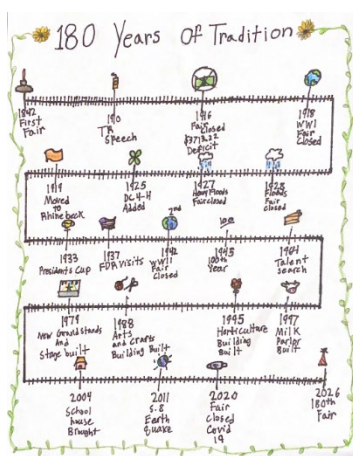 180 Years Of Tradition
1842
First
Fair
1910
TR
Speech
1916
Fair
Closed
Deficit
1918
WWI
Fair
Closed
1919
Moved
to
Rhinebeck
1925
DC 4-H
Added
1927
Heavy Floods
Fair closed
1928
Floods
Fair
closed
1933
Presidents Cup
1937
FDR Visits
2nd
1942
WWII
Fair
Closed
1945
100th
Year
1964
Talent
search
1979
New Grandstands
and
Stage built
1988
Arts
and Crafts
Building Built
1995
Horticulture
Building
Built
1997
Milk
Parlor
Built
2004
School
house
Brought
2011
5.8
Earth
Quake
2020
Fair
closed
Covid
19
2026
180th
Fair